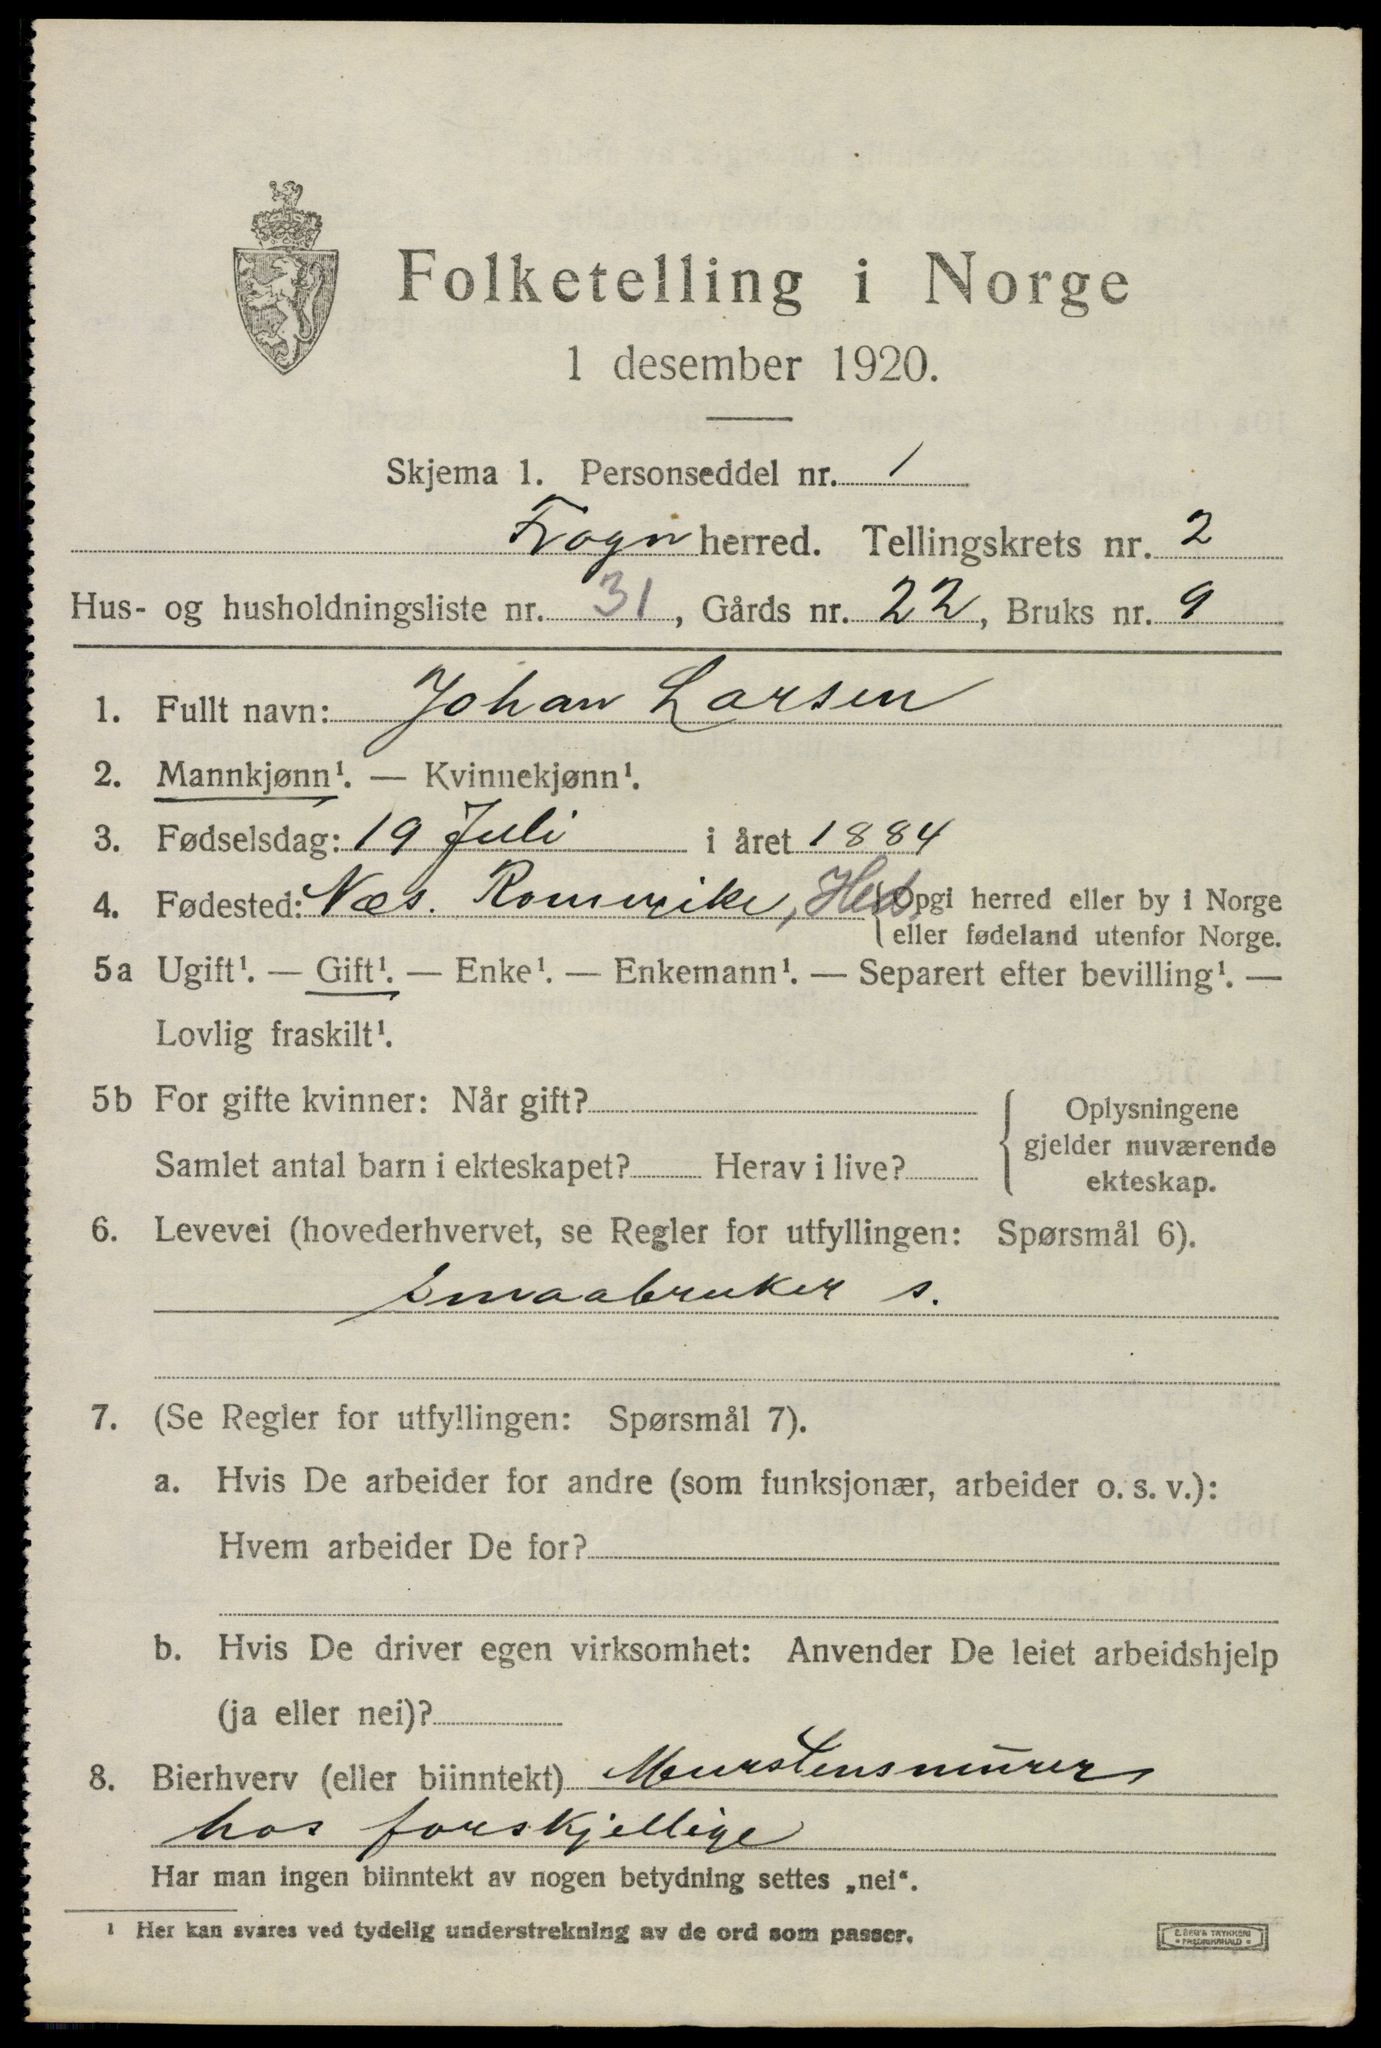 Folketelling i Norge
1 desember 1920.
Skjema 1. Personseddel nr. 1
Frogn herred. Tellingskrets nr. 2
Hus- og husholdningsliste nr. 31, Gårds nr. 22, Bruks nr. 9
1. Fullt navn: Johan Larsen
2. Mannkjønn¹. — Kvinnekjønn¹.
3. Fødselsdag: 19 Juli i året 1884
4. Fødested: Næs. Romerike, Hed. {Opgi herred eller by i Norge
eller fødeland utenfor Norge.
5a Ugift¹. — Gift¹. — Enke¹. — Enkemann¹. — Separert efter bevilling¹. —
Lovlig fraskilt¹.
5b For gifte kvinner: Når gift? Oplysningene
gjelder nuværende
Samlet antal barn i ekteskapet? Herav i live? ekteskap.
6. Levevei (hovederhvervet, se Regler for utfyllingen: Spørsmål 6).
Smaabruker s.
7. (Se Regler for utfyllingen: Spørsmål 7).
a. Hvis De arbeider for andre (som funksjonær, arbeider o. s. v.):
Hvem arbeider De for?
b. Hvis De driver egen virksomhet: Anvender De leiet arbeidshjelp
(ja eller nei)?
8. Bierhverv (eller biinntekt) Murstensmurer
hos forskjellige
Har man ingen biinntekt av nogen betydning settes „nei“.
¹ Her kan svares ved tydelig understrekning av de ord som passer.
E. BERG'S TRYKKERI
FREDRIKSHALD